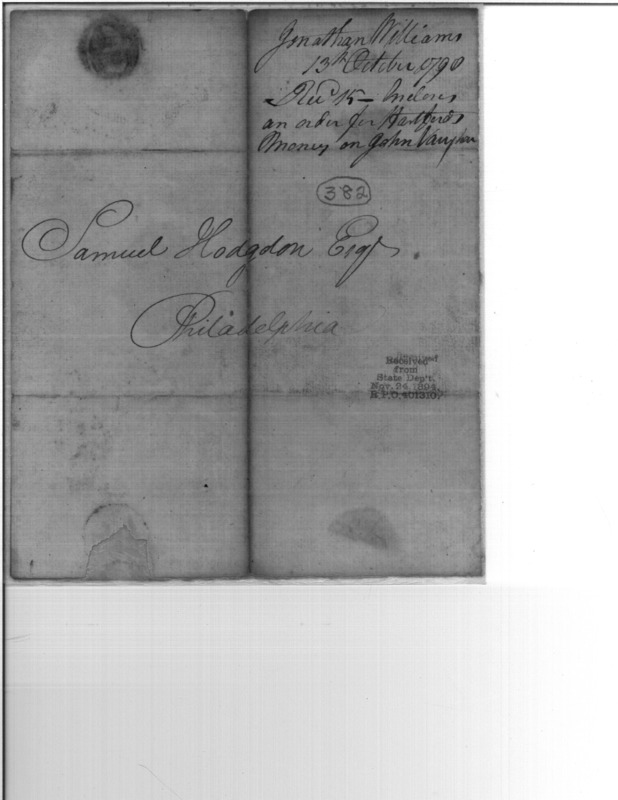 Jonathan Williams
13th October 1798
Recd 15 - Incloses
an order for Hartford's
Money on John Vaughan
382
Samuel Hodgdon Esqr
Philadelphia
Received
from
State Dep't.
Nov. 24, 1894
R.P.O. 401310.